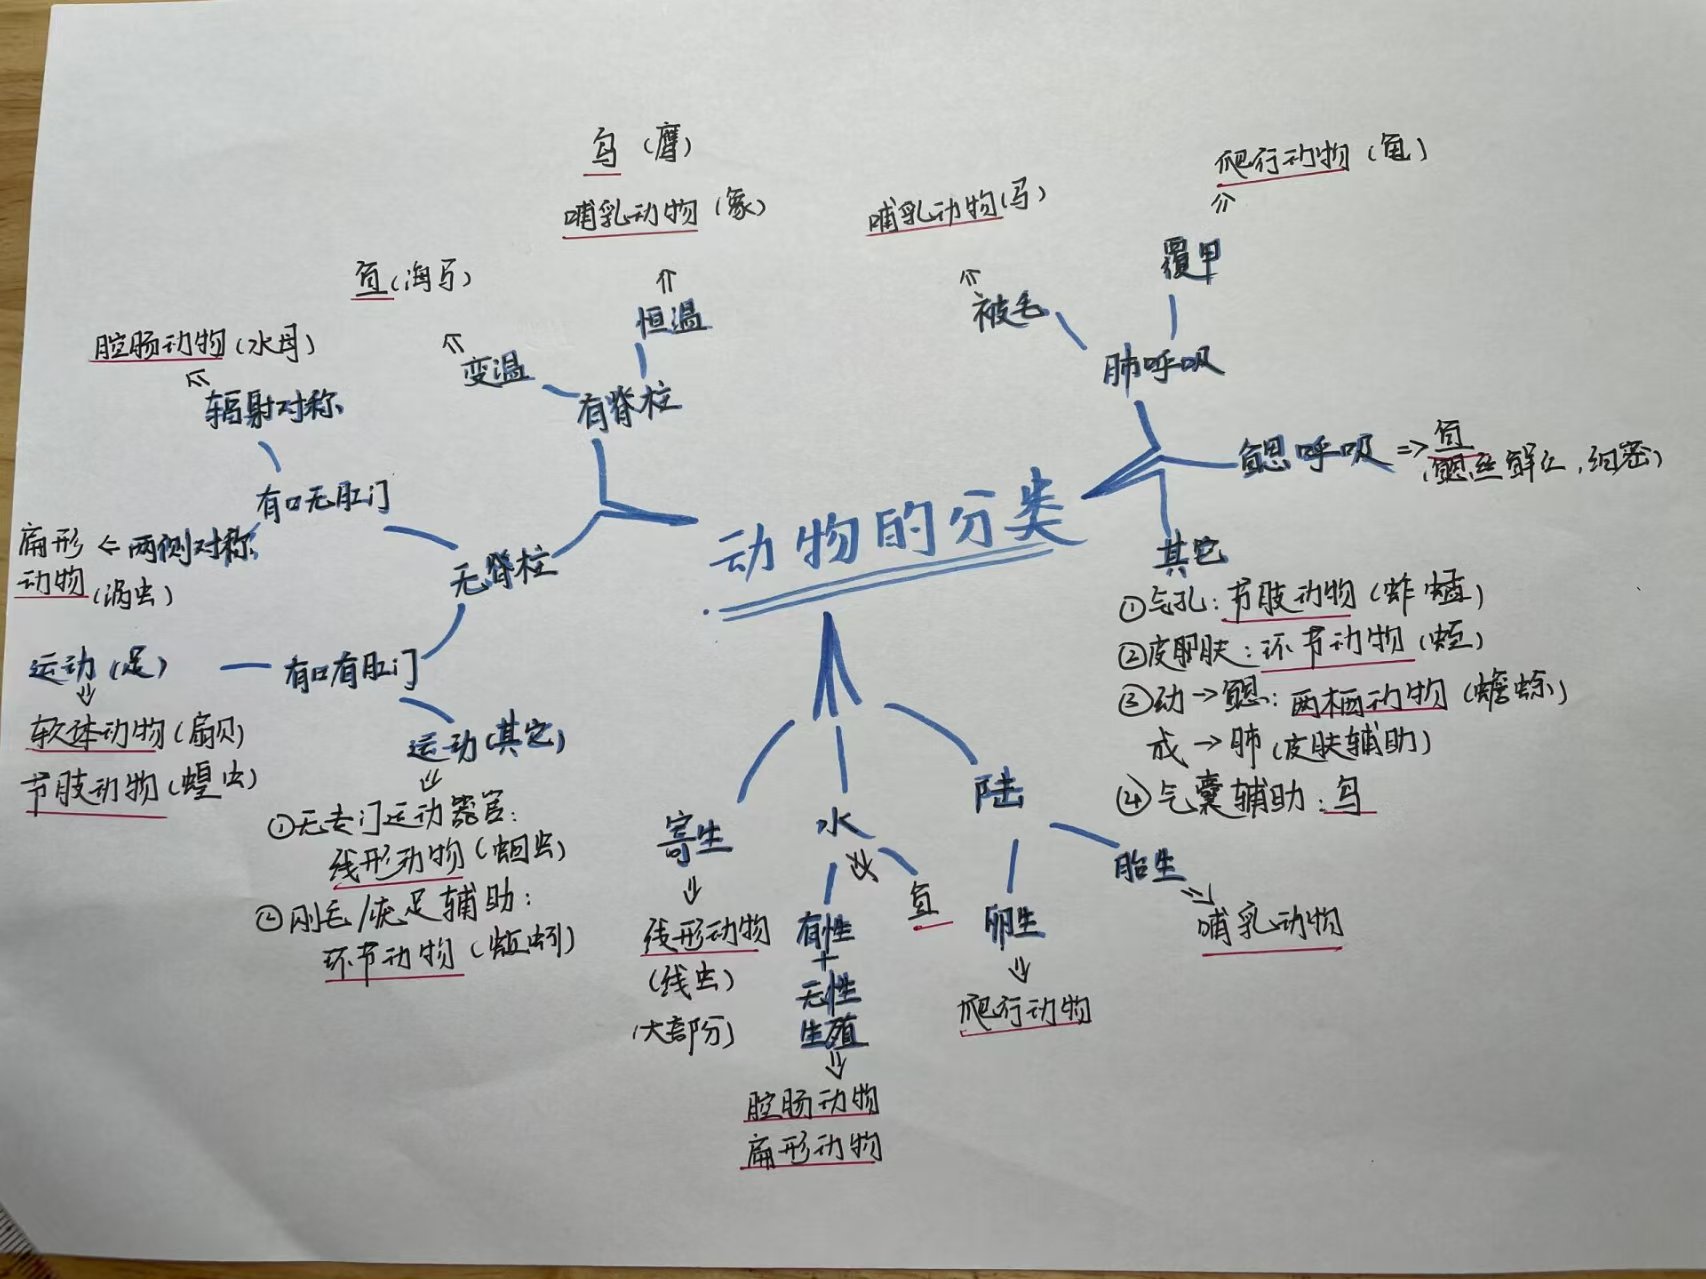 动物的分类
鸟（鹰）
哺乳动物（象）
恒温
鱼（海马）
变温
有脊柱
腔肠动物（水母）
辐射对称
有口无肛门
扁形
动物（涡虫）
两侧对称
无脊柱
有口有肛门
运动（足）
软体动物（扇贝）
节肢动物（蝗虫）
运动（其它）
①无专门运动器官：
线形动物（蛔虫）
②刚毛/疣足辅助：
环节动物（蚯蚓）
哺乳动物（马）
被毛
爬行动物（龟）
覆甲
肺呼吸
鳃呼吸
鱼
（鳃丝鲜红，细密）
其它
①气孔：节肢动物（蚱蜢）
②皮肤：环节动物（蛭）
③幼→鳃：两栖动物（蟾蜍）
成→肺（皮肤辅助）
④气囊辅助：鸟
寄生
线形动物
（线虫）
（大部分）
水
有性
+
无性
生殖
腔肠动物
扁形动物
鱼
陆
卵生
爬行动物
胎生
哺乳动物